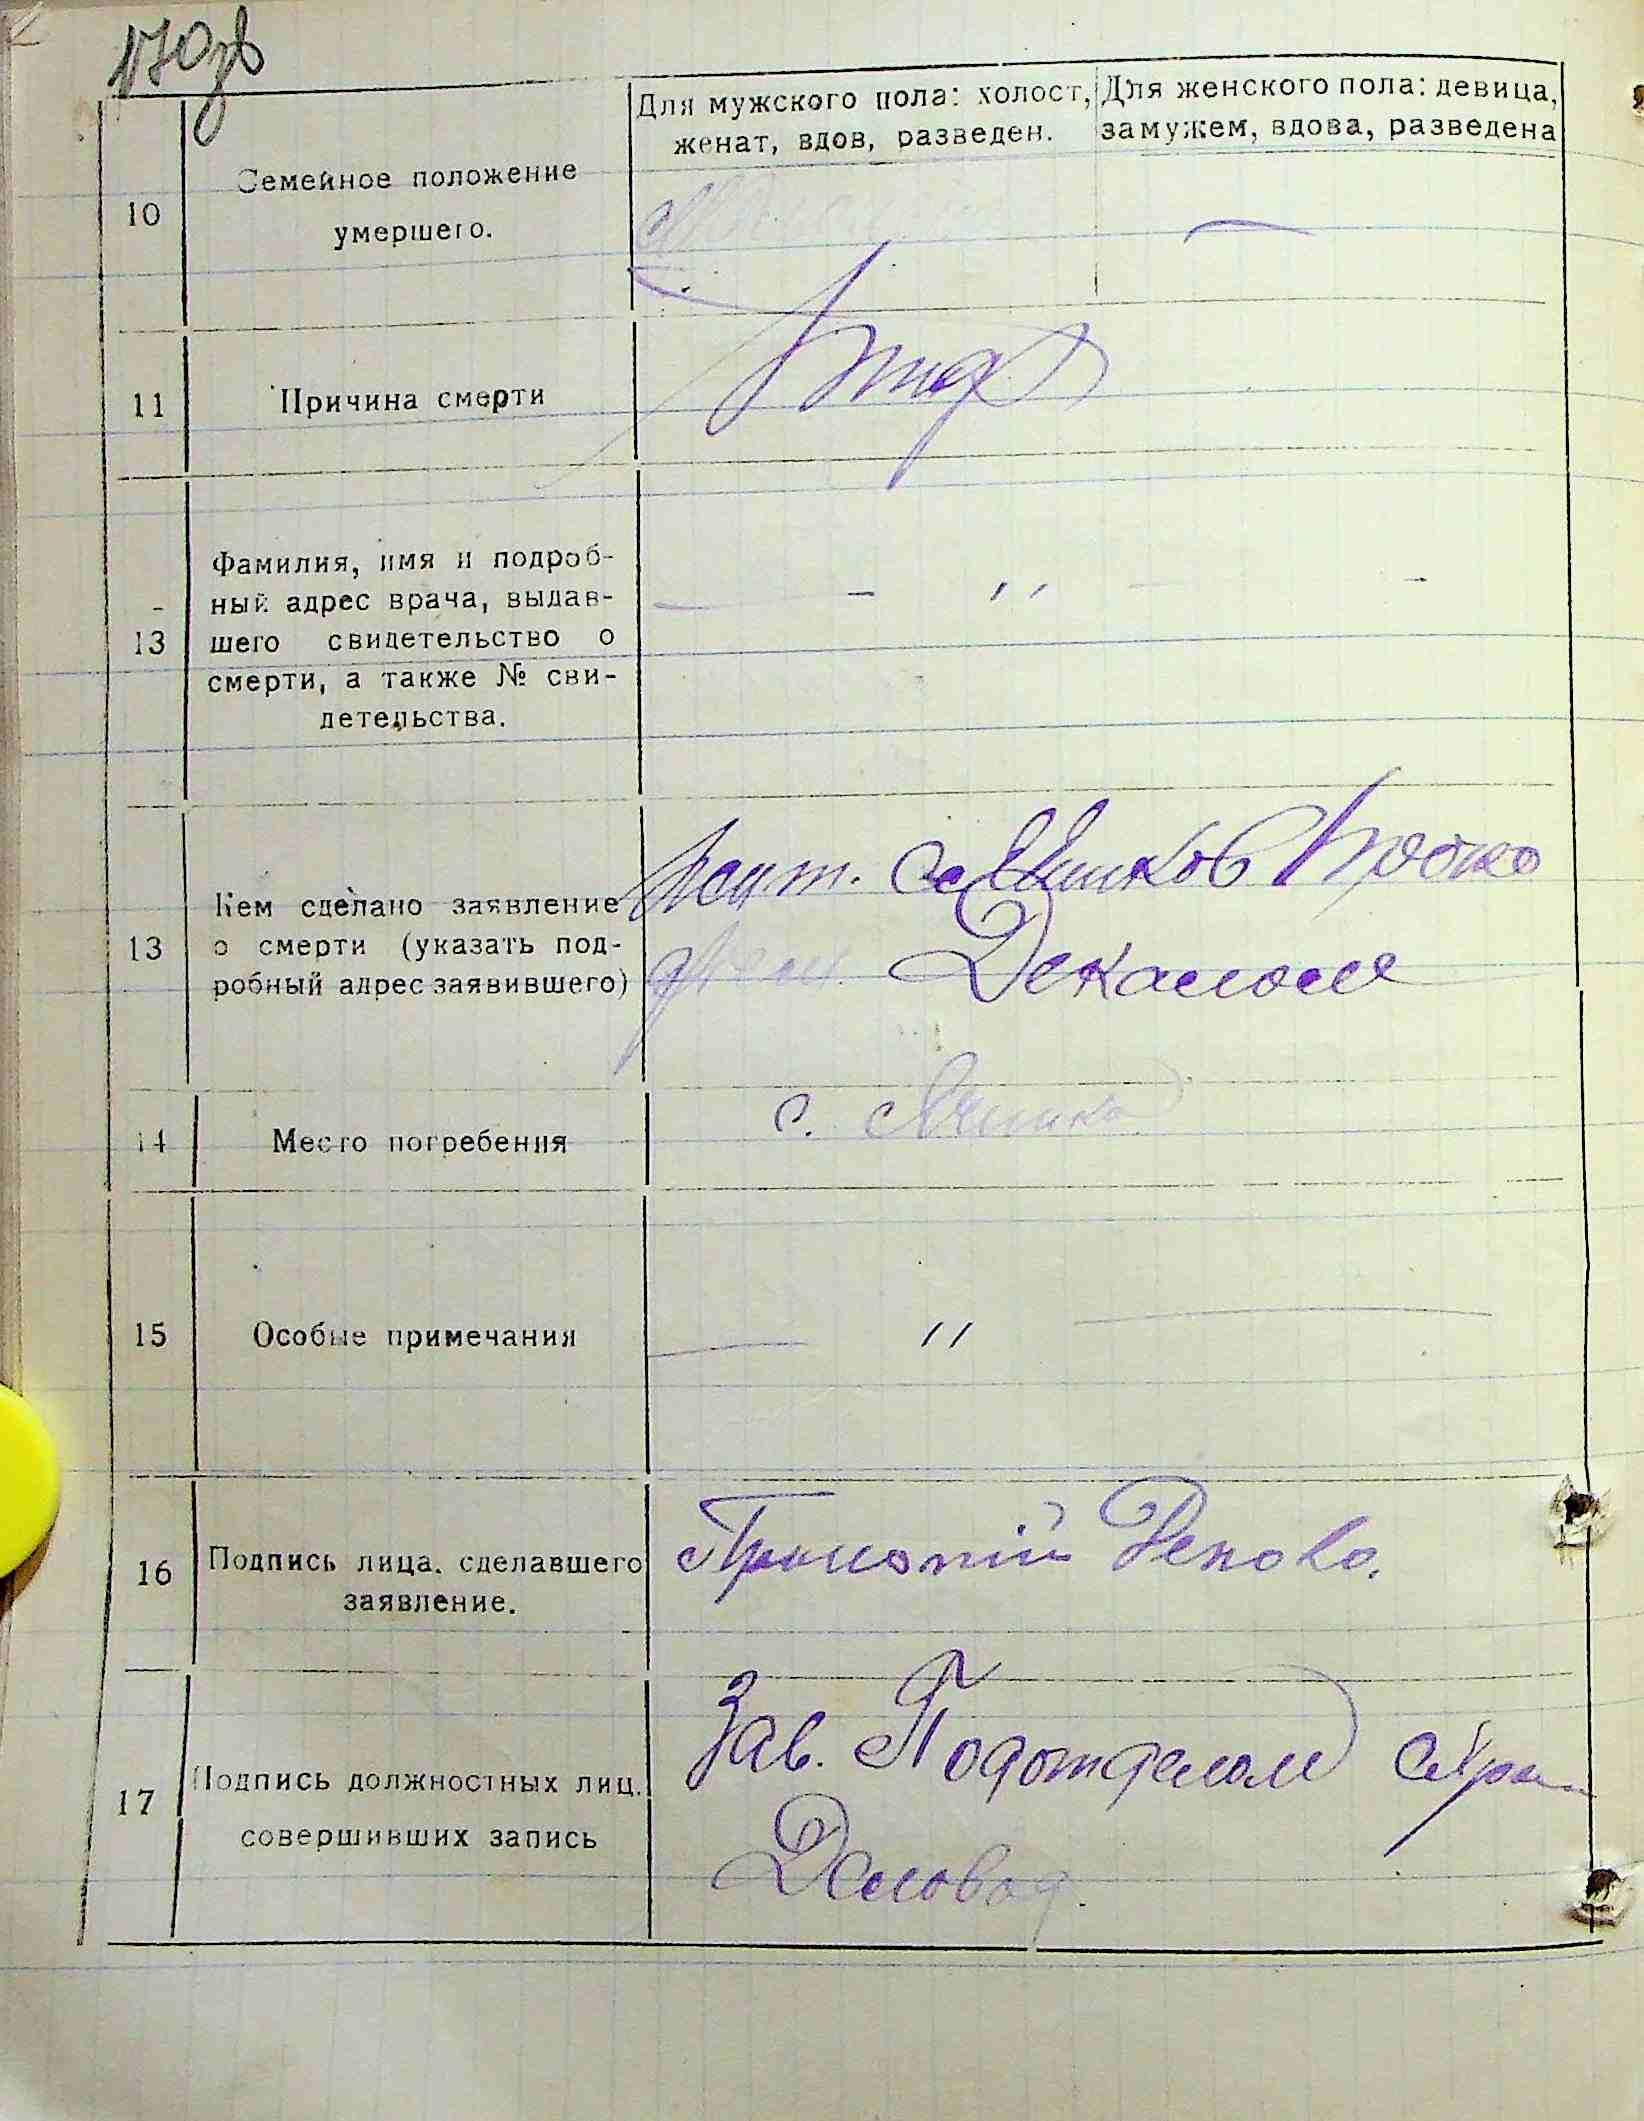 170об
Для мужского пола: холост, женат, вдов, разведен.
Для женского пола: девица, замужем, вдова, разведена
10
Семейное положение
умершего.
—
11
Причина смерти
Фамилия, имя и подроб-
13
ный адрес врача, выдав-
шего свидетельство о
смерти, а также № сви-
детельства.
— - ,, — -
13
Кем сделано заявление
о смерти (указать под-
робный адрес заявившего)
жит.
14
Место погребения
с.
15
Особые примечания
— ,, —
16
Подпись лица. сделавшего
заявление.
17
Подпись должностных лиц.
совершивших запись
Зав. Подотделом
Деловод.